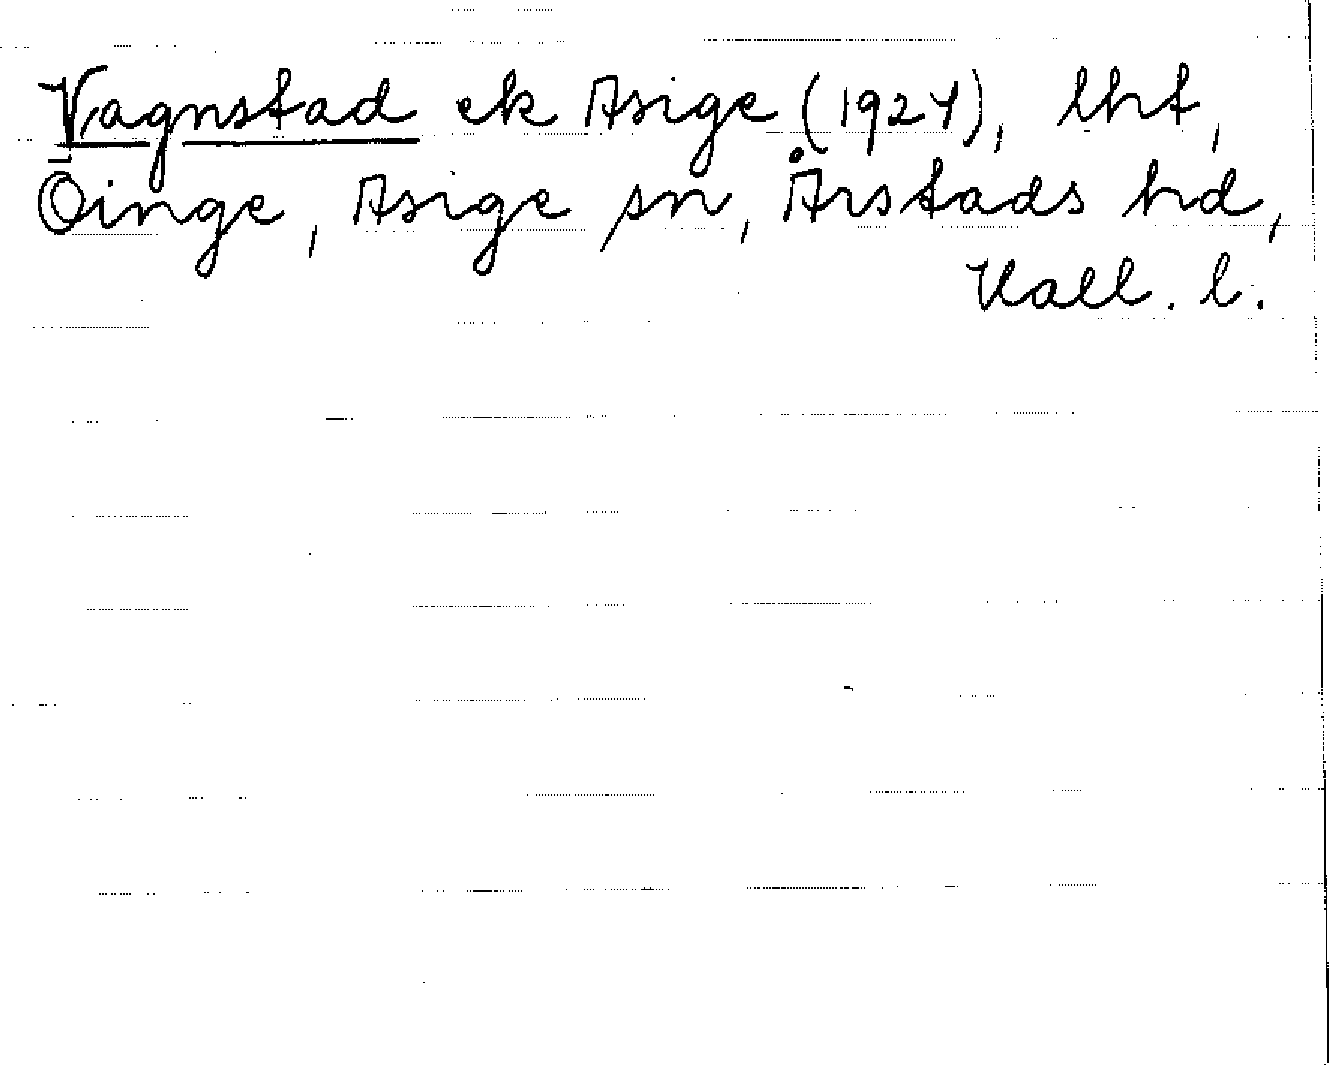 Vagnstad ek Asige (1924), lht,
Öinge, Asige sn, Årstads hd,
Hall. l.